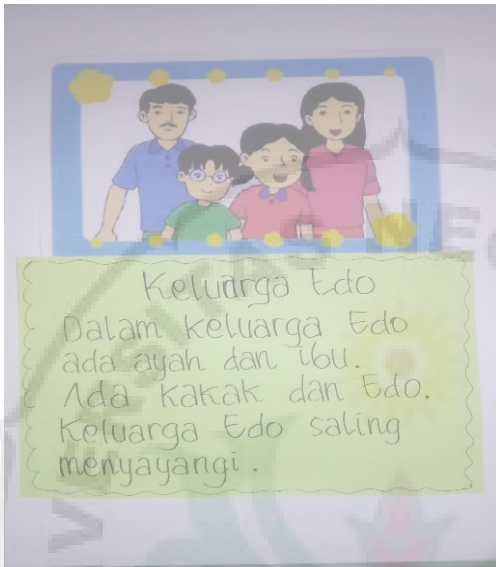 Keluarga Edo
Dalam keluarga Edo
ada ayah dan ibu.
Ada kakak dan Edo.
Keluarga Edo saling
menyayangi.